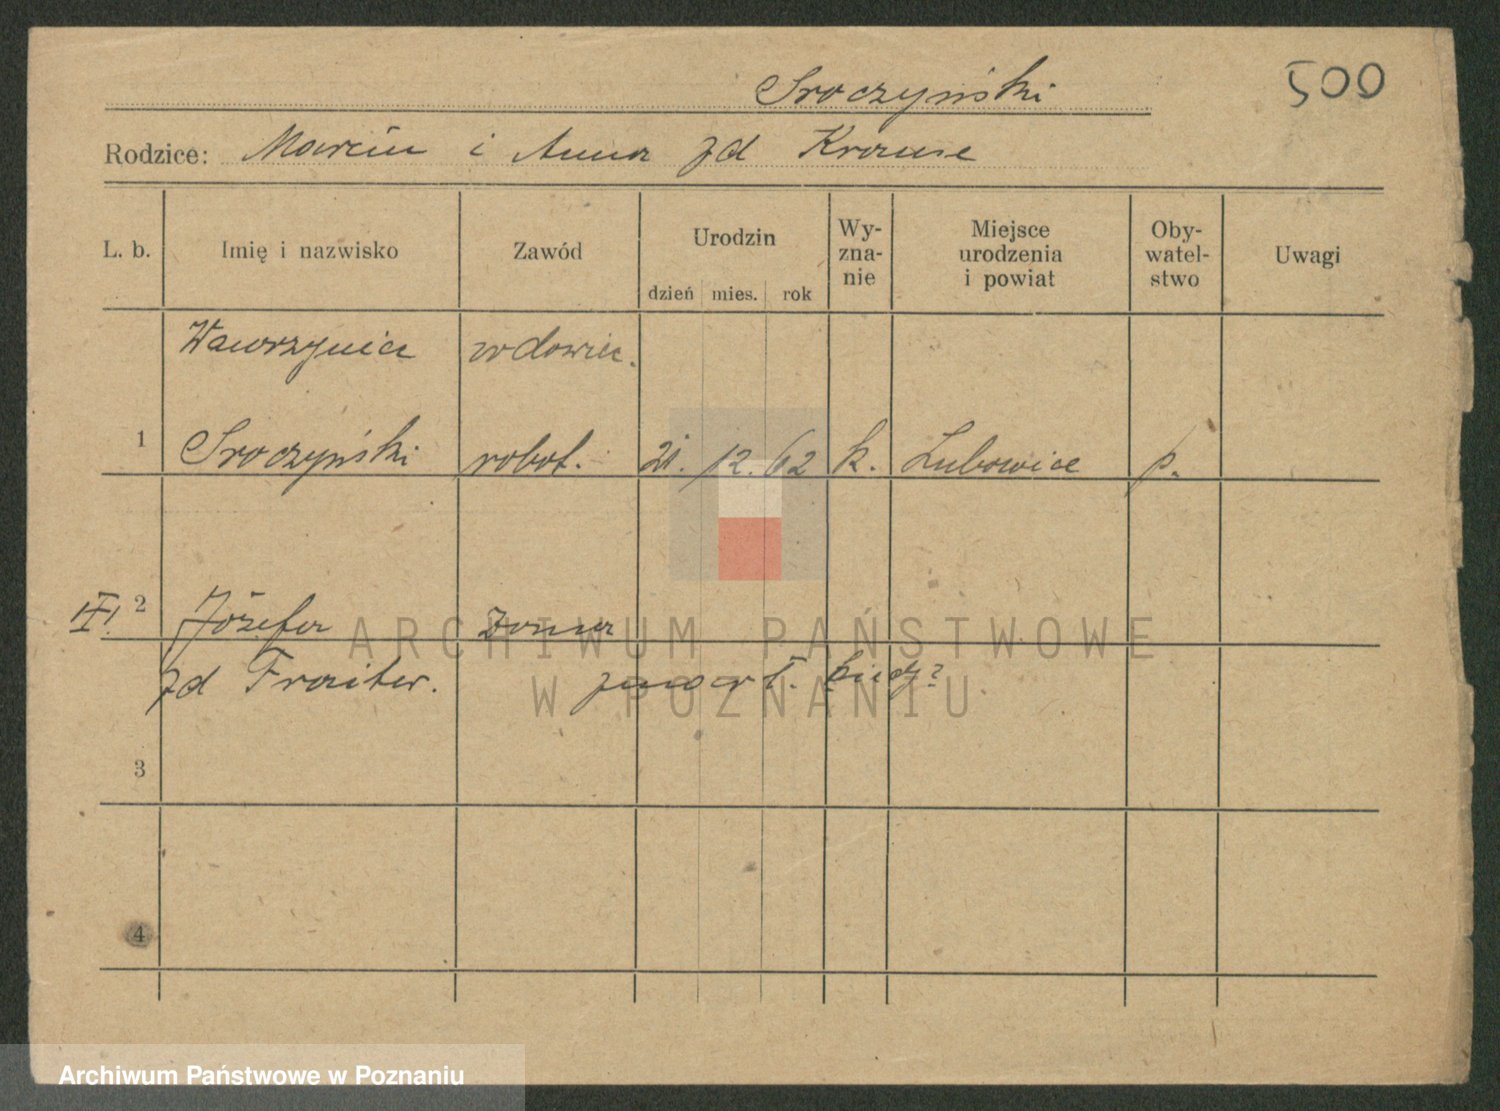 Sroczyński
500
Rodzice: Marcin i Anna zd Krause
L. b. Imię i nazwisko Zawód Urodzin dzień mies. rok Wy-zna-nie Miejsce urodzenia i powiat Oby-watel-stwo Uwagi
Wawrzyniec wdowiec.
1 Sroczyński robot. 21. 12. 62 k. Lubowice p.
2 Józefa żona
zd Traiter.
3
4
ARCHIWUM PAŃSTWOWE
W POZNANIU
Archiwum Państwowe w Poznaniu